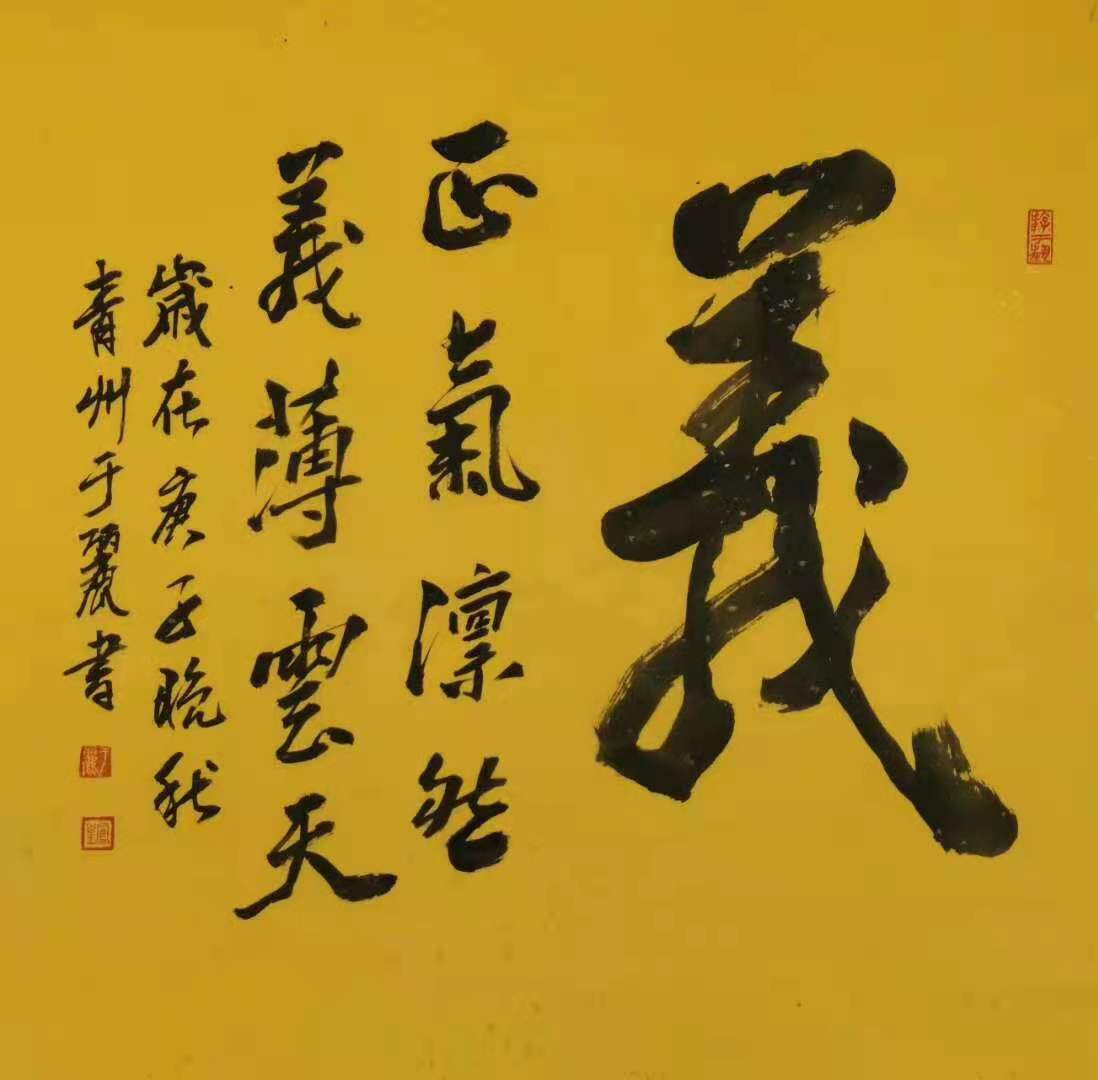 義
正氣凛然
義薄雲天
歲在庚子晚秋
青州于麗書